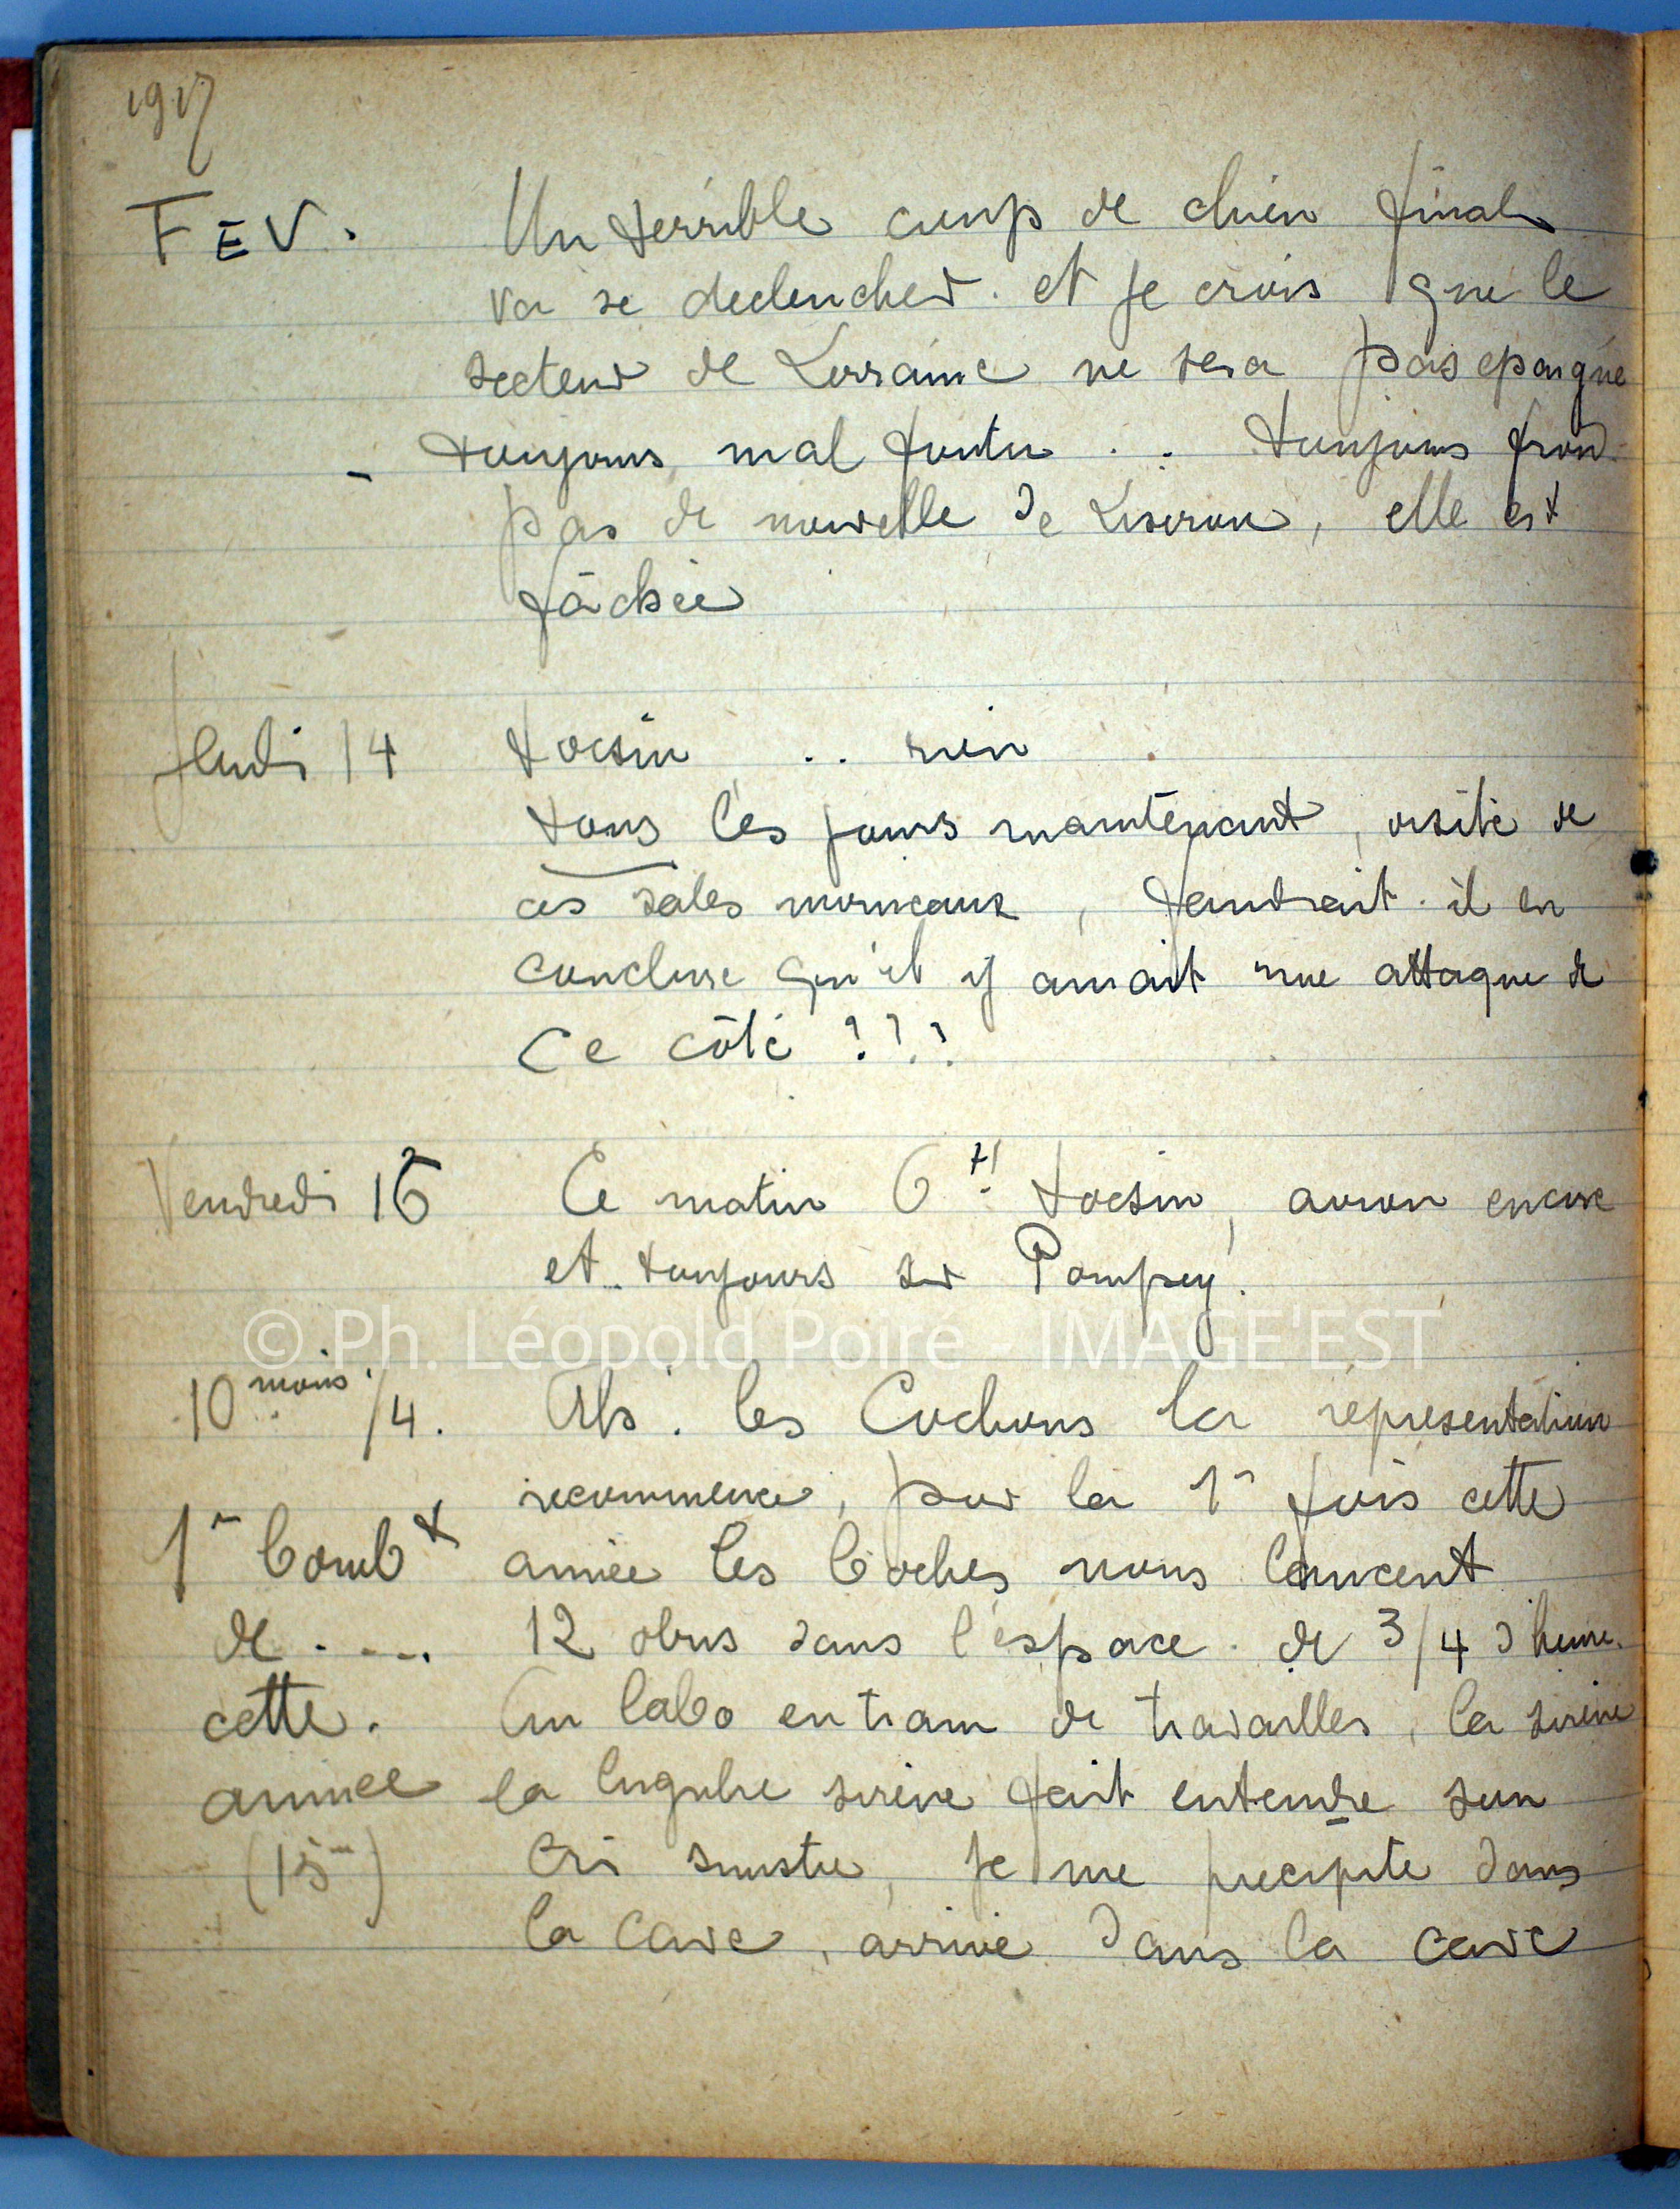 1917
FEV. Un terrible coup de chien final
va se declencher. et je crois que le
secteur de Lorraine ne sera pas epargné
- toujours mal foutu . . toujours froid.
pas de nouvelle de Liseron, elle est
fâchée
Jeudi 14 tocsin .. rien
tous les jours maintenant, visite de
ces sales morceaux, faudrait-il en
conclure qu'il y aurait une attaque de
ce côté ???
Vendredi 16 Ce matin 6 H. tocsin, avion encore
et toujours sur Pompey.
© Ph. Léopold Poiré - IMAGE'EST
10 moins 1/4. Ah. les Cochons la représentation
recommence, pour la 1e fois cette
1er bombt année les boches nous lancent
de .... 12 obus dans l'espace. de 3/4 d'heure.
cette. Au labo en train de travailler, la sirène
année la lugubre sirène fait entendre son
(15) cri sinistre, je me précipite dans
la cave, arrivé dans la cave